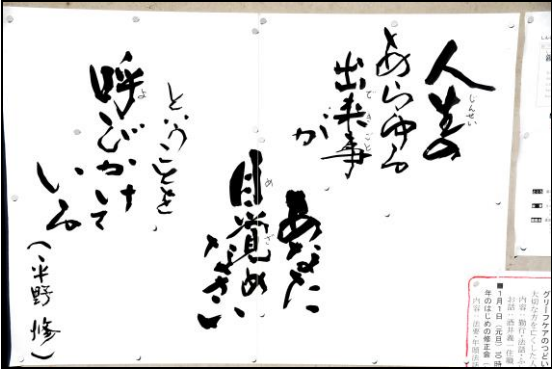 人生の
あらゆる
出来事
が
あなたに
目覚め
なさい
ということを
呼びかけて
いる
(平野 修)
グリーフケアのつどい
大切な方を亡くした人
■1月1日(元旦)0時
年のはじめの修正会